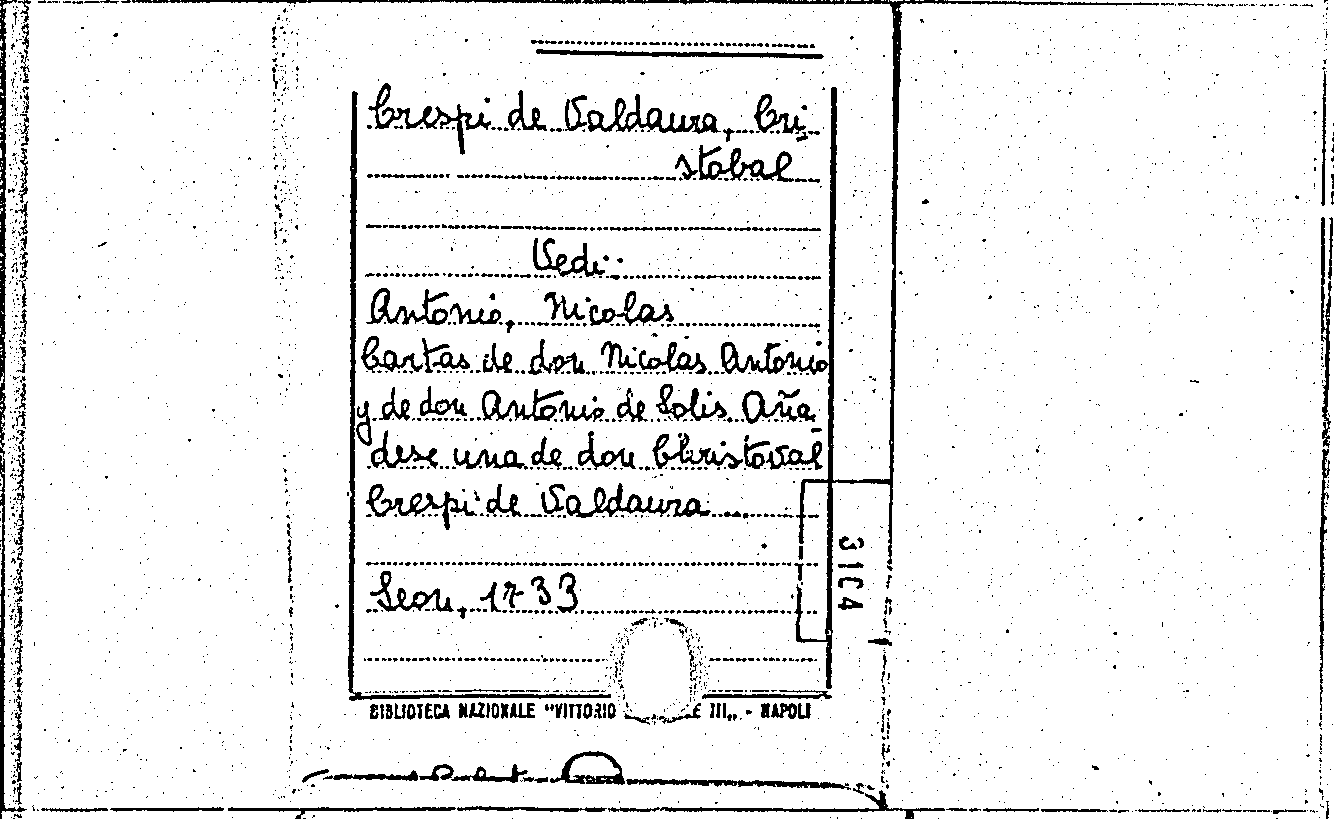 Crespi de Valdaura, Cri-
stobal
Vedi:
Antonio, Nicolas
Cartas de don Nicolas Antonio
y de don Antonio de Solis. Aña-
dese una de don Christoval
Crespi de Valdaura ...
Leon, 1733
3104
BIBLIOTECA NAZIONALE "VITTORIO III„ - NAPOLI